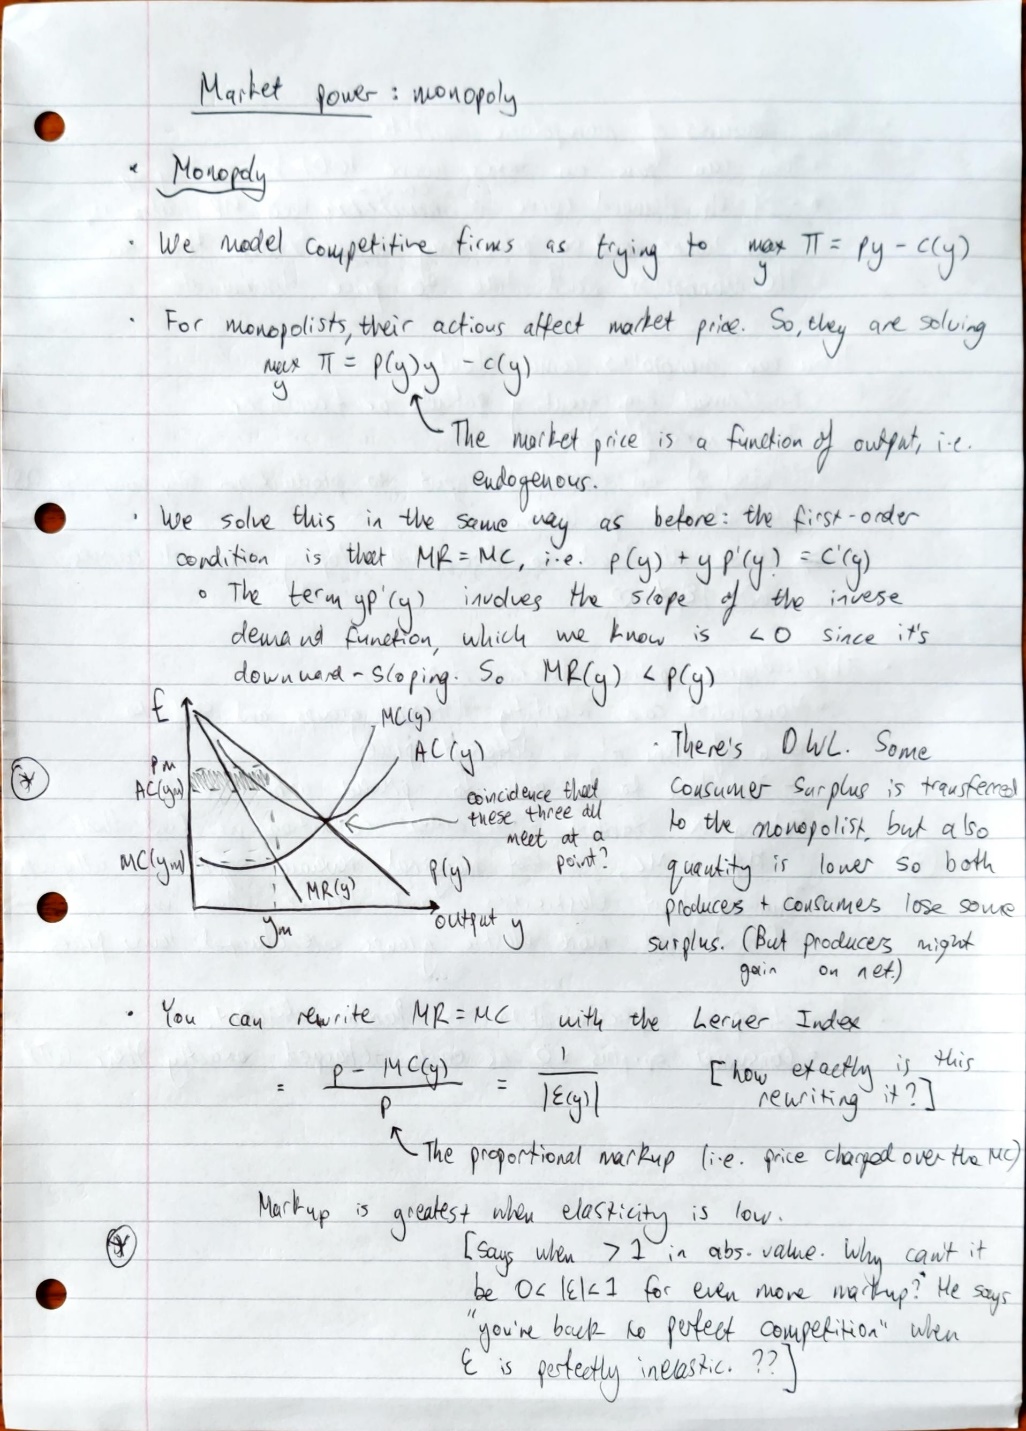 Market power: monopoly
* Monopoly
· We model competitive firms as trying to max y π = py - c(y)
· For monopolists, their actions affect market price. So, they are solving
max y π = p(y)y - c(y)
The market price is a function of output, i.e.
endogenous.
· We solve this in the same way as before: the first-order
condition is that MR = MC, i.e. p(y) + y p'(y) = c'(y)
∘ The term yp'(y) involves the slope of the inverse
demand function, which we know is <0 since it's
downward-sloping. So MR(y) < p(y)
£
MC(y)
AC(y)
pm
AC(ym)
MC(ym)
coincidence that
these three all
meet at a
point?
p(y)
MR(y)
ym
output y
· There's DWL. Some
consumer surplus is transferred
to the monopolist, but also
quantity is lower so both
producers + consumes lose some
surplus. (But producers might
gain on net.)
· You can rewrite MR = MC with the Lerner Index
= p - MC(y) / p = 1 / |ε(y)| [how exactly is this
rewriting it?]
The proportional markup (i.e. price charged over the MC)
Markup is greatest when elasticity is low.
[Says when > 1 in abs. value. Why can't it
be 0 < |ε| < 1 for even more markup? He says
"you're back to perfect competition" when
ε is perfectly inelastic. ??]